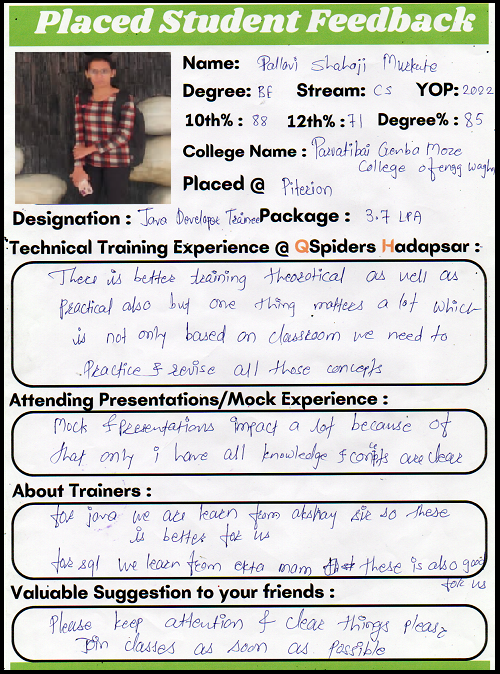 Placed Student Feedback
Name: Pallavi Shahaji Murkute
Degree: BE Stream: CS YOP: 2022
10th% : 88 12th% : 71 Degree% : 85
College Name : Parvatibai Genba Moze
College of engg Wagh
Placed @ Piterion
Designation : Java Developer Trainee Package : 3.7 LPA
Technical Training Experience @ QSpiders Hadapsar :
There is better training theorotical as well as
practical also but one thing matters a lot which
is not only based on classroom we need to
Practice & revise all those concepts
Attending Presentations/Mock Experience :
Mock & Presentations impact a lot because of
that only i have all knowledge & are clear
About Trainers :
for java we are learn from akshay sir so these
is better for us
for sql we learn from ekta mam these is also good
for us
Valuable Suggestion to your friends :
Please keep attention & clear things please
Join classes as soon as possible